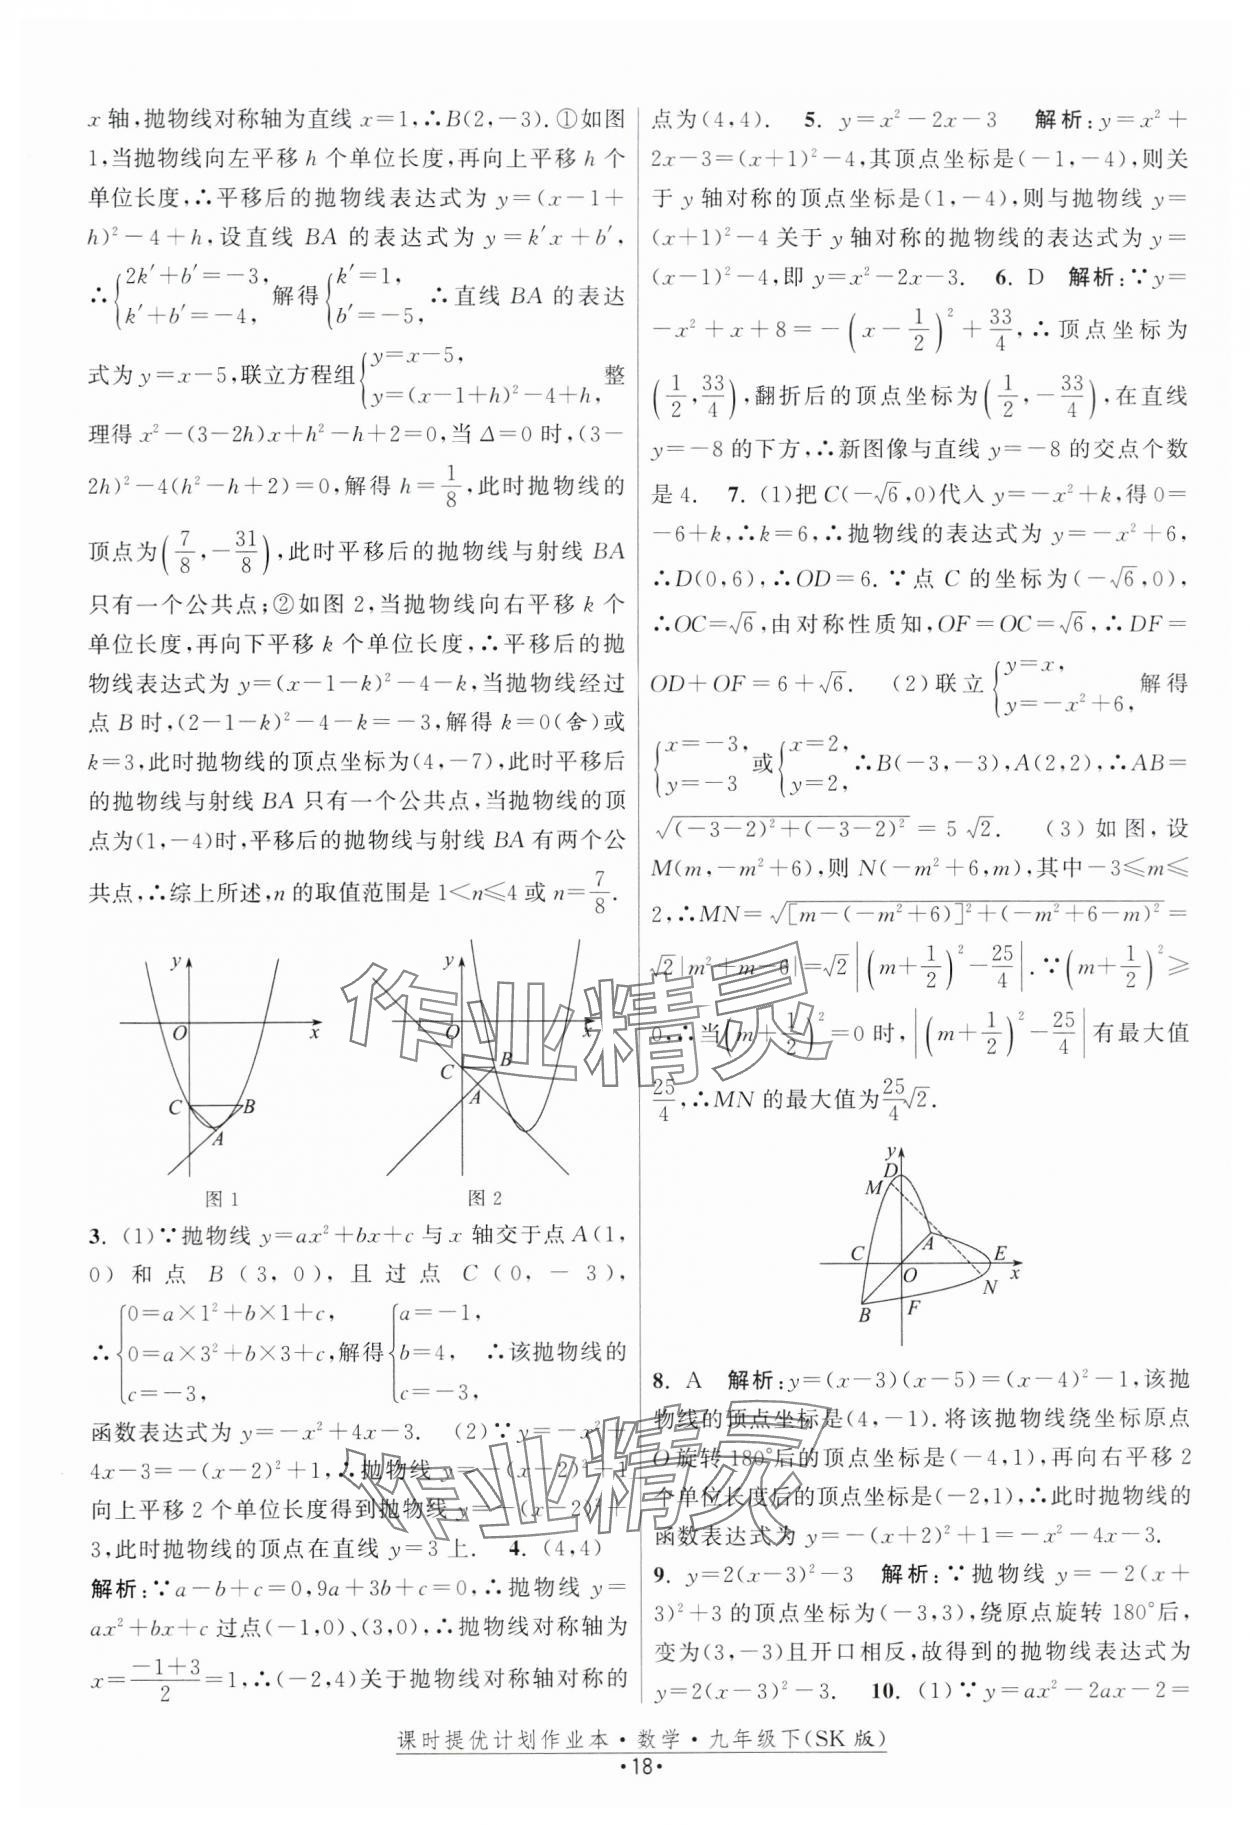 x轴,抛物线对称轴为直线x=1,∴B(2,-3).①如图
1,当抛物线向左平移h个单位长度,再向上平移h个
单位长度,∴平移后的抛物线表达式为y=(x-1+
h)²-4+h,设直线BA的表达式为y=k′x+b′,
∴{2k′+b′=-3, k′+b′=-4, 解得{k′=1, b′=-5, ∴直线BA的表达
式为y=x-5,联立方程组{y=x-5, y=(x-1+h)²-4+h, 整
理得x²-(3-2h)x+h²-h+2=0,当Δ=0时,(3-
2h)²-4(h²-h+2)=0,解得h=1/8,此时抛物线的
顶点为(7/8,-31/8),此时平移后的抛物线与射线BA
只有一个公共点;②如图2,当抛物线向右平移k个
单位长度,再向下平移k个单位长度,∴平移后的抛
物线表达式为y=(x-1-k)²-4-k,当抛物线经过
点B时,(2-1-k)²-4-k=-3,解得k=0(舍)或
k=3,此时抛物线的顶点坐标为(4,-7),此时平移后
的抛物线与射线BA只有一个公共点,当抛物线的顶
点为(1,-4)时,平移后的抛物线与射线BA有两个公
共点,∴综上所述,n的取值范围是1<n≤4或n=7/8.
y
O
x
C
B
A
图1
y
O
x
C
B
A
图2
3. (1)∵抛物线y=ax²+bx+c与x轴交于点A(1,
0)和点B(3,0),且过点C(0,-3),
∴{0=a×1²+b×1+c, 0=a×3²+b×3+c, c=-3, 解得{a=-1, b=4, c=-3, ∴该抛物线的
函数表达式为y=-x²+4x-3. (2)∵y=-x²+
4x-3=-(x-2)²+1,∴抛物线y=-(x-2)²+1
向上平移2个单位长度得到抛物线y=-(x-2)²+
3,此时抛物线的顶点在直线y=3上. 4. (4,4)
解析:∵a-b+c=0,9a+3b+c=0,∴抛物线y=
ax²+bx+c过点(-1,0)、(3,0),∴抛物线对称轴为
x=(-1+3)/2=1,∴(-2,4)关于抛物线对称轴对称的
点为(4,4). 5. y=x²-2x-3 解析:y=x²+
2x-3=(x+1)²-4,其顶点坐标是(-1,-4),则关
于y轴对称的顶点坐标是(1,-4),则与抛物线y=
(x+1)²-4关于y轴对称的抛物线的表达式为y=
(x-1)²-4,即y=x²-2x-3. 6. D 解析:∵y=
-x²+x+8=-(x-1/2)²+33/4,∴顶点坐标为
(1/2,33/4),翻折后的顶点坐标为(1/2,-33/4),在直线
y=-8的下方,∴新图像与直线y=-8的交点个数
是4. 7. (1)把C(-√6,0)代入y=-x²+k,得0=
-6+k,∴k=6,∴抛物线的表达式为y=-x²+6,
∴D(0,6),∴OD=6.∵点C的坐标为(-√6,0),
∴OC=√6,由对称性质知,OF=OC=√6,∴DF=
OD+OF=6+√6. (2)联立{y=x, y=-x²+6, 解得
{x=-3, y=-3 或{x=2, y=2, ∴B(-3,-3),A(2,2),∴AB=
√((-3-2)²+(-3-2)²)=5√2. (3)如图,设
M(m,-m²+6),则N(-m²+6,m),其中-3≤m≤
2,∴MN=√([m-(-m²+6)]²+(-m²+6-m)²)=
√2|m²+m-6|=√2|(m+1/2)²-25/4|.∵(m+1/2)²≥
0,∴当(m+1/2)²=0时,|(m+1/2)²-25/4|有最大值
25/4,∴MN的最大值为25/4√2.
y
D
M
A
C
E
O
x
N
B
F
8. A 解析:y=(x-3)(x-5)=(x-4)²-1,该抛
物线的顶点坐标是(4,-1).将该抛物线绕坐标原点
O旋转180°后的顶点坐标是(-4,1),再向右平移2
个单位长度后的顶点坐标是(-2,1),∴此时抛物线的
函数表达式为y=-(x+2)²+1=-x²-4x-3.
9. y=2(x-3)²-3 解析:∵抛物线y=-2(x+
3)²+3的顶点坐标为(-3,3),绕原点旋转180°后,
变为(3,-3)且开口相反,故得到的抛物线表达式为
y=2(x-3)²-3. 10. (1)∵y=ax²-2ax-2=
课时提优计划作业本·数学·九年级下(SK版)
·18·
作业精灵
作业精灵